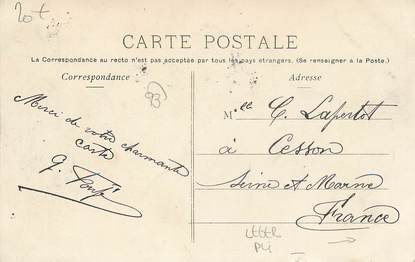 20 t
CARTE POSTALE
La Correspondance au recto n'est pas acceptée par tous les pays étrangers. (Se renseigner à la Poste.)
Correspondance
Adresse
93
Merci de votre charmante
carte
M.elle C. Lapertot
à Cesson
Seine et Marne
France
LEGER
PLI